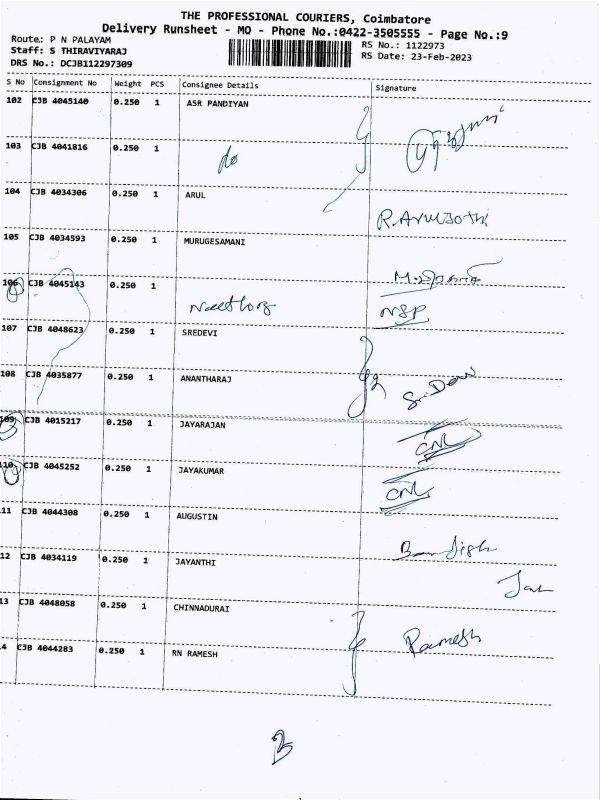 THE PROFESSIONAL COURIERS, Coimbatore
Delivery Runsheet - MO - Phone No.:0422-3505555 - Page No.:9
Route: P N PALAYAM
Staff: S THIRAVIYARAJ
DRS No.: DCJB112297309
RS No.: 1122973
RS Date: 23-Feb-2023
S No Consignment No Weight PCS Consignee Details Signature
102 CJB 4045140 0.250 1 ASR PANDIYAN
103 CJB 4041816 0.250 1 do
104 CJB 4034306 0.250 1 ARUL
R.ARULJOTHI
105 CJB 4034593 0.250 1 MURUGESAMANI
106 CJB 4045143 0.250 1
NSP
107 CJB 4048623 0.250 1 SREDEVI
108 CJB 4035877 0.250 1 ANANTHARAJ
109 CJB 4015217 0.250 1 JAYARAJAN
110 CJB 4045252 0.250 1 JAYAKUMAR
11 CJB 4044308 0.250 1 AUGUSTIN
12 CJB 4034119 0.250 1 JAYANTHI
13 CJB 4048058 0.250 1 CHINNADURAI
Ramesh
4 CJB 4044283 0.250 1 RN RAMESH